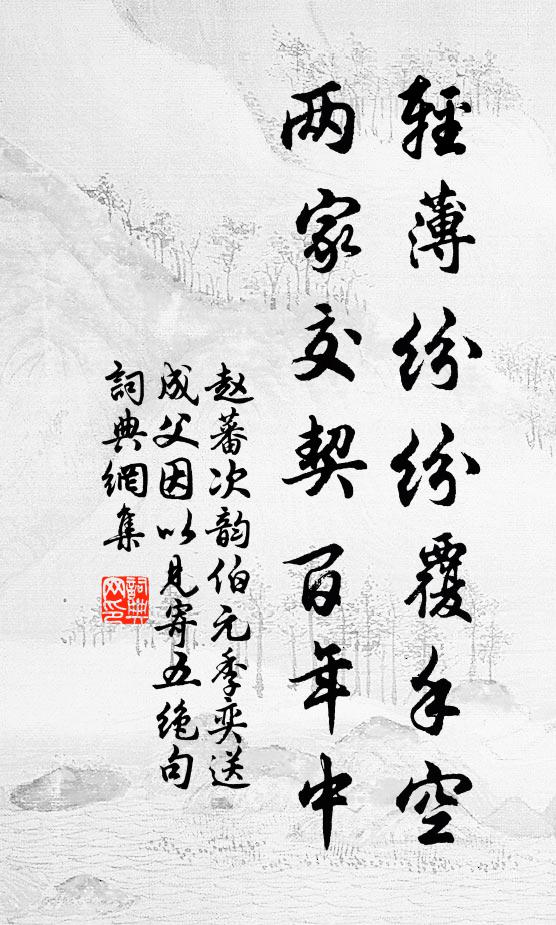 輕薄紛紛覆手空
两家交契百年中
赵蕃次韵伯元季奕送
成父因以見寄五绝句
詞典網集
詞典网印